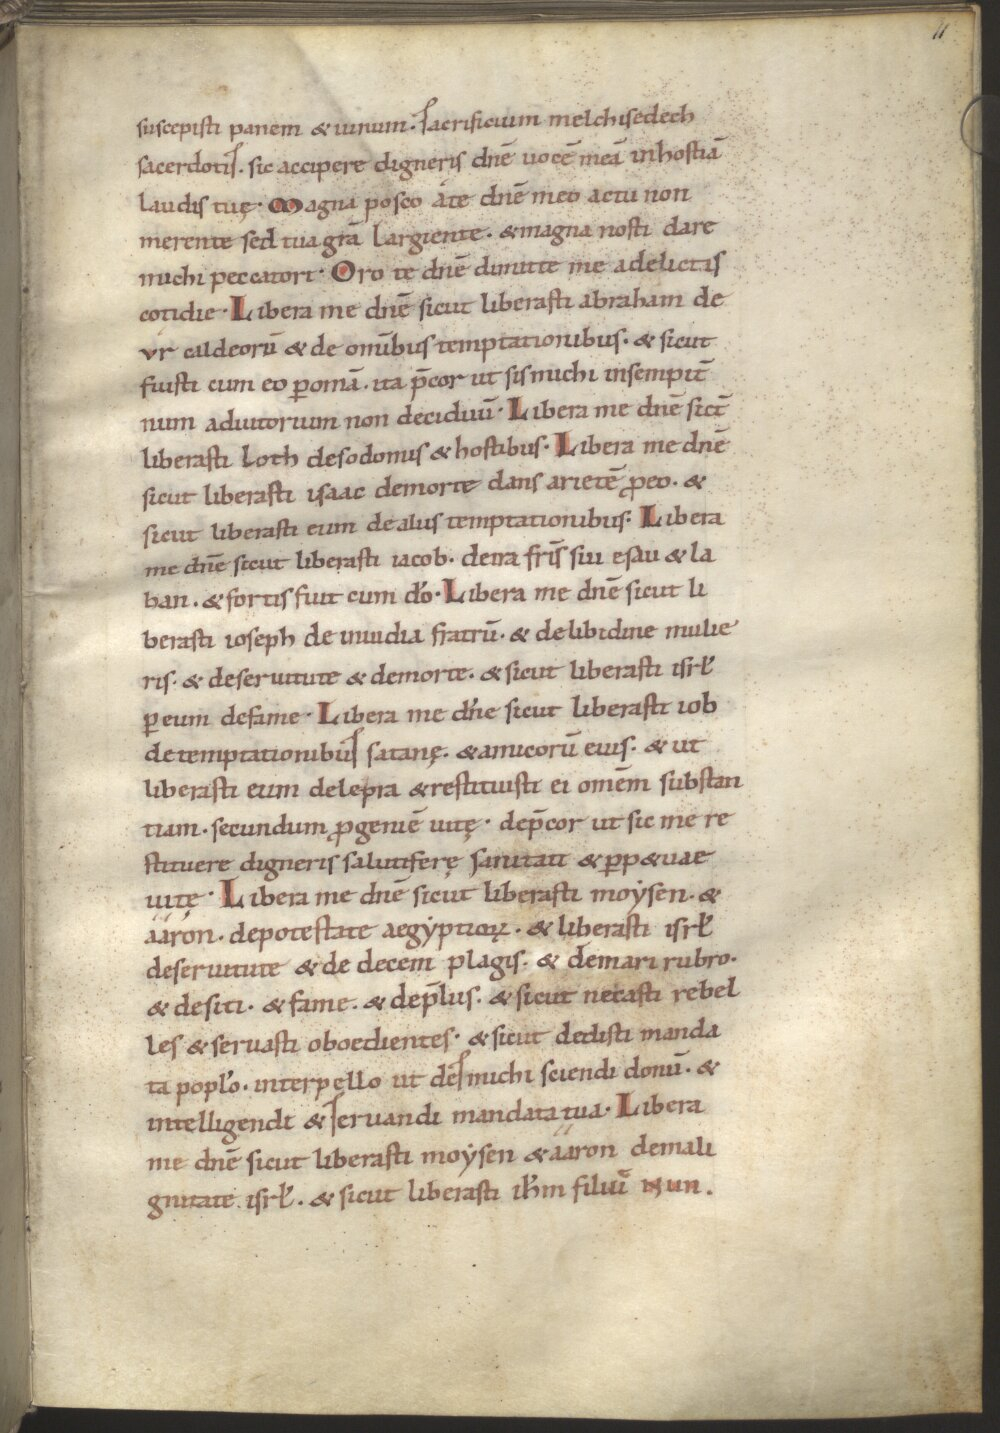 11
suscepisti panem & uinum. Sacrificium melchisedech
sacerdotis. sic accipere digneris dnē uocē meā inhostiā
laudis tuę. Magna posco áte dnē meo actu non
merente sed tua grā largiente. & magna nosti dare
michi peccatori. Oro te dnē dimitte me adelictis
cotidie. Libera me dnē sicut liberasti abraham de
vr caldeorū & de omībus temptationibus. & sicut
fuisti cum eo ꝑomā. ita p̄cor ut sis michi insempit̄
num adiutorium non deciduū. Libera me dnē sict̄
liberasti Loth desodomis & hostibus. Libera me dnē
sicut liberasti isaac demorte dans arietē ꝓeo. &
sicut liberasti eum dealiis temptationibus. Libera
me dnē sicut liberasti iacob. deira fr̄is sui esau & la
ban. & fortis fuit cum dō. Libera me dnē sicut li
berasti ioseph de inuidia fratrū. & delibidine mulie
ris. & deseruitute & demorte. & sicut liberasti isrł
ꝑ eum defame. Libera me dn̄e sicut liberasti iob
detemptationibus satanę. & amicorū eius. & ut
liberasti eum delepra & restituisti ei omēm substan
tiam. secundum ꝓgeniē uitę. dep̄cor ut sic me re
stituere digneris salutiferę sanitati & ꝑp&uae
uitę. Libera me dnē sicut liberasti moẏsen. &
ááron. depotestate aegẏptioꝝ. & liberasti isrł
deseruitute & de decem plagis. & demari rubro.
& desiti. & fame. & dep̄lus. & sicut necasti rebel
les & seruasti oboedientes. & sicut dedisti manda
ta poplo. interpello ut dēs michi sciendi donū. &
intelligendi & seruandi mandata tua. Libera
me dnē sicut liberasti moẏsen & ááron demali
gnitate isrł. & sicut liberasti ihm filiū nun.